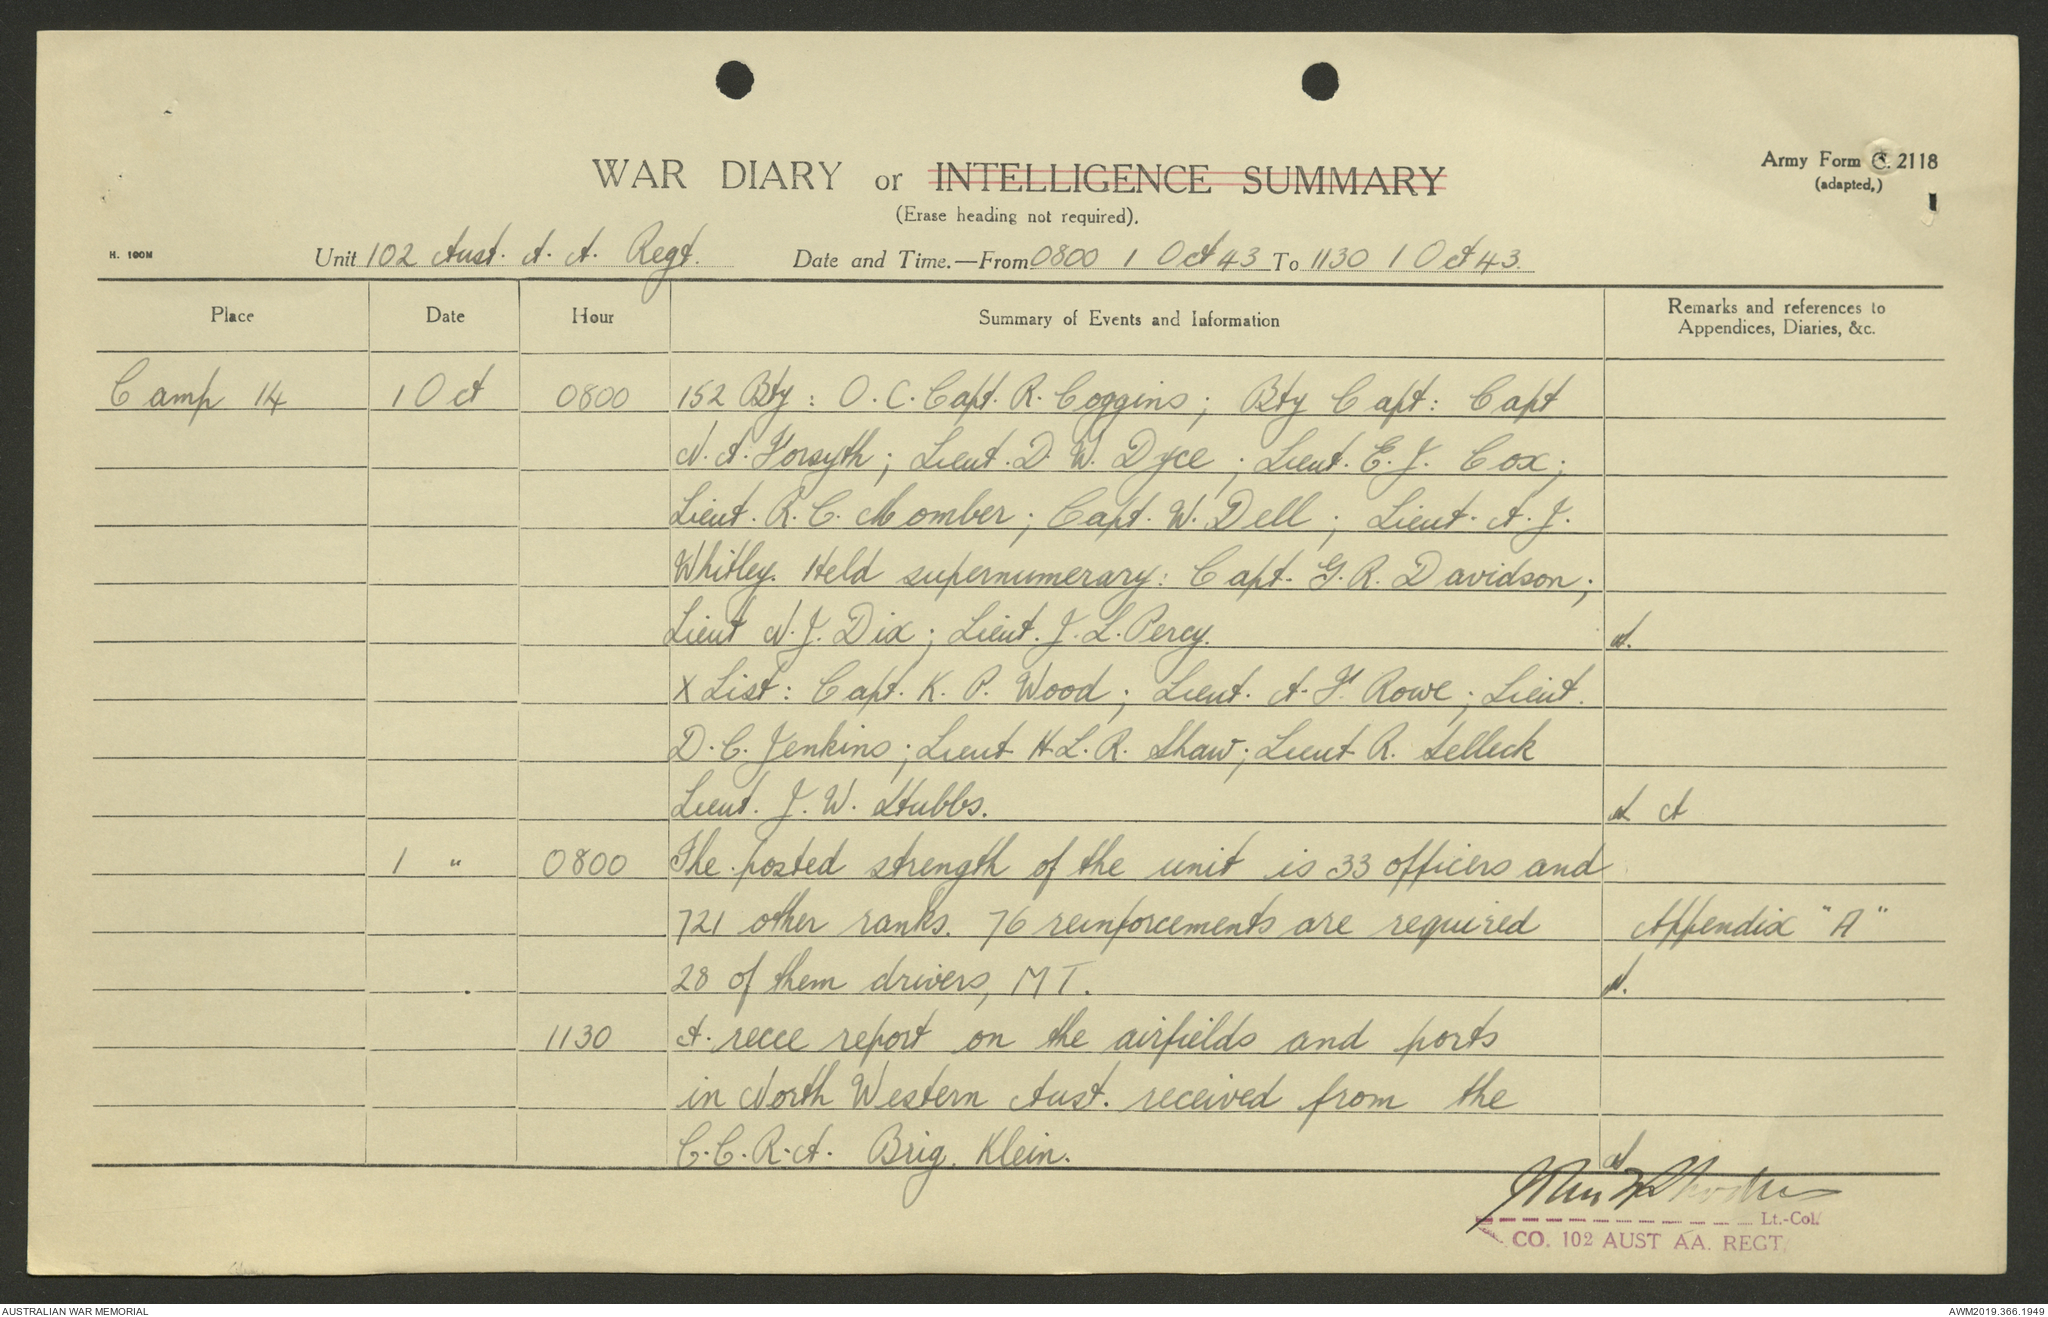 WAR DIARY or INTELLIGENCE SUMMARY
(Erase heading not required).
Army Form C. 2118
(adapted,)
1
H. 100M
Unit 102 Aust. A. A. Regt. Date and Time.—From 0800 1 Oct 43 To 1130 1 Oct 43.
Place Date Hour Summary of Events and Information Remarks and references to
Appendices, Diaries, &c.
Camp 14 1 Oct 0800 152 Bty: O.C. Capt. R. Coggins; Bty Capt: Capt
N. A. Forsyth; Lieut. D. W. Dyce; Lieut. E. J. Cox;
Lieut. R. C. Momber; Capt. W. Dell; Lieut. A. J.
Whitley. Held supernumerary: Capt. G. R. Davidson;
Lieut N. J. Dix; Lieut. J. L. Percy.
X List: Capt. K. P. Wood; Lieut. A. F. Rowe; Lieut.
D. C. Jenkins; Lieut H. L. R. Shaw; Lieut R. Selleck
Lieut. J. W. Stubbs.
1 " 0800 The posted strength of the unit is 33 officers and
721 other ranks. 76 reinforcements are required Appendix "A"
28 of them drivers, MT.
1130 A recce report on the airfields and ports
in North Western Aust. received from the
C.C.R.A. Brig. Klein.
Lt.-Col.
CO. 102 AUST AA. REGT
AUSTRALIAN WAR MEMORIAL AWM2019.366.1949